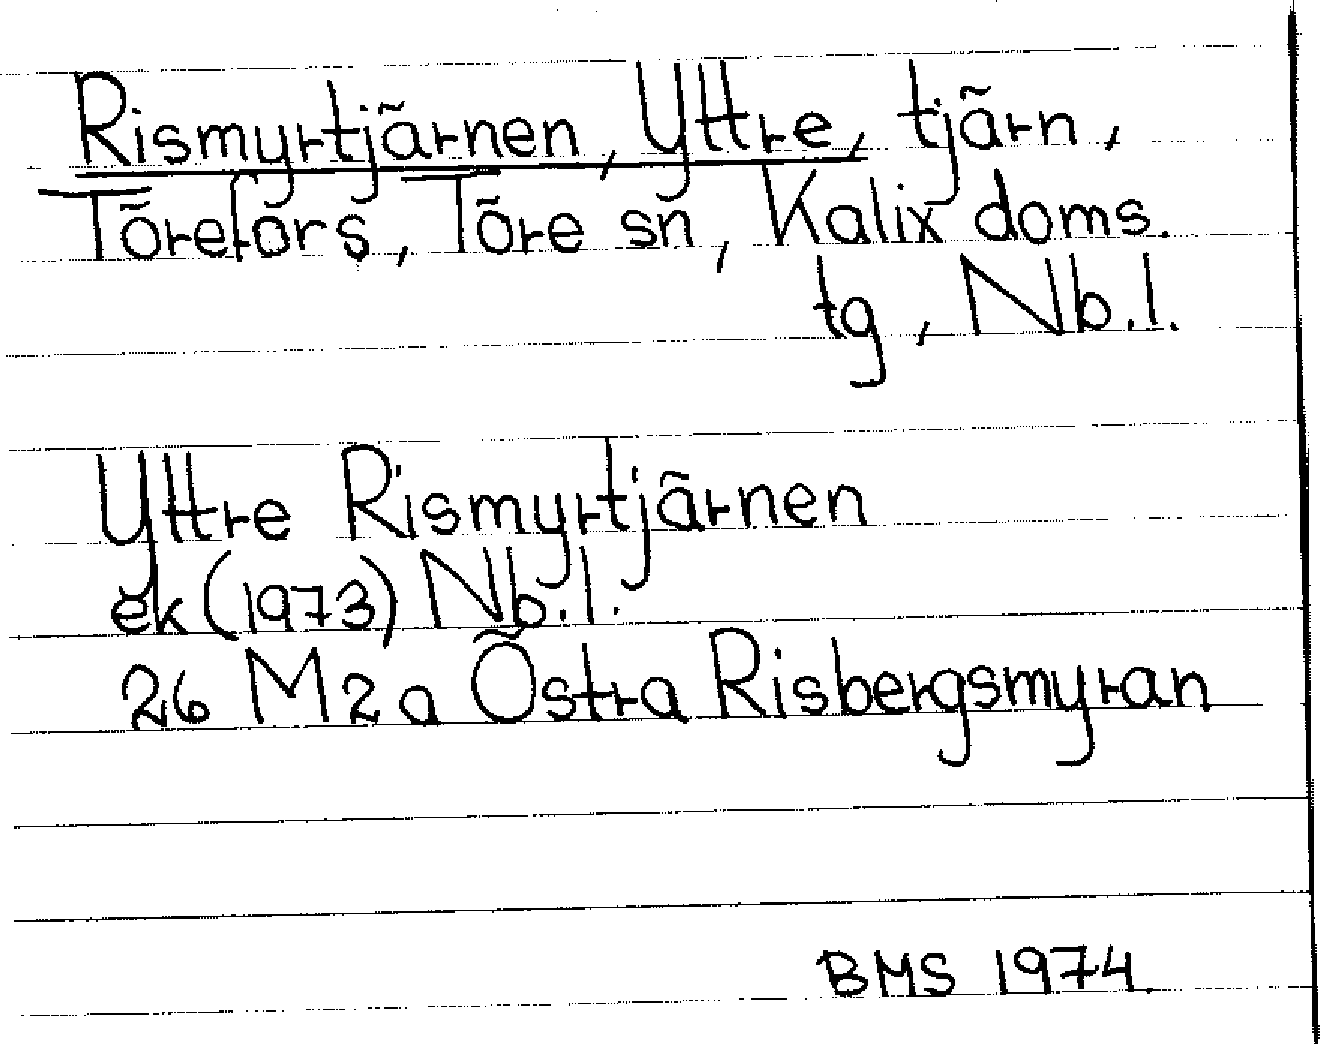 Rismyrtjärnen, Yttre, tjärn,
Törefors, Töre sn, Kalix doms.
tg, Nb.l.
Yttre Rismyrtjärnen
ek (1973) Nb.l.
26 M 2 a Östra Risbergsmyran
BMS 1974